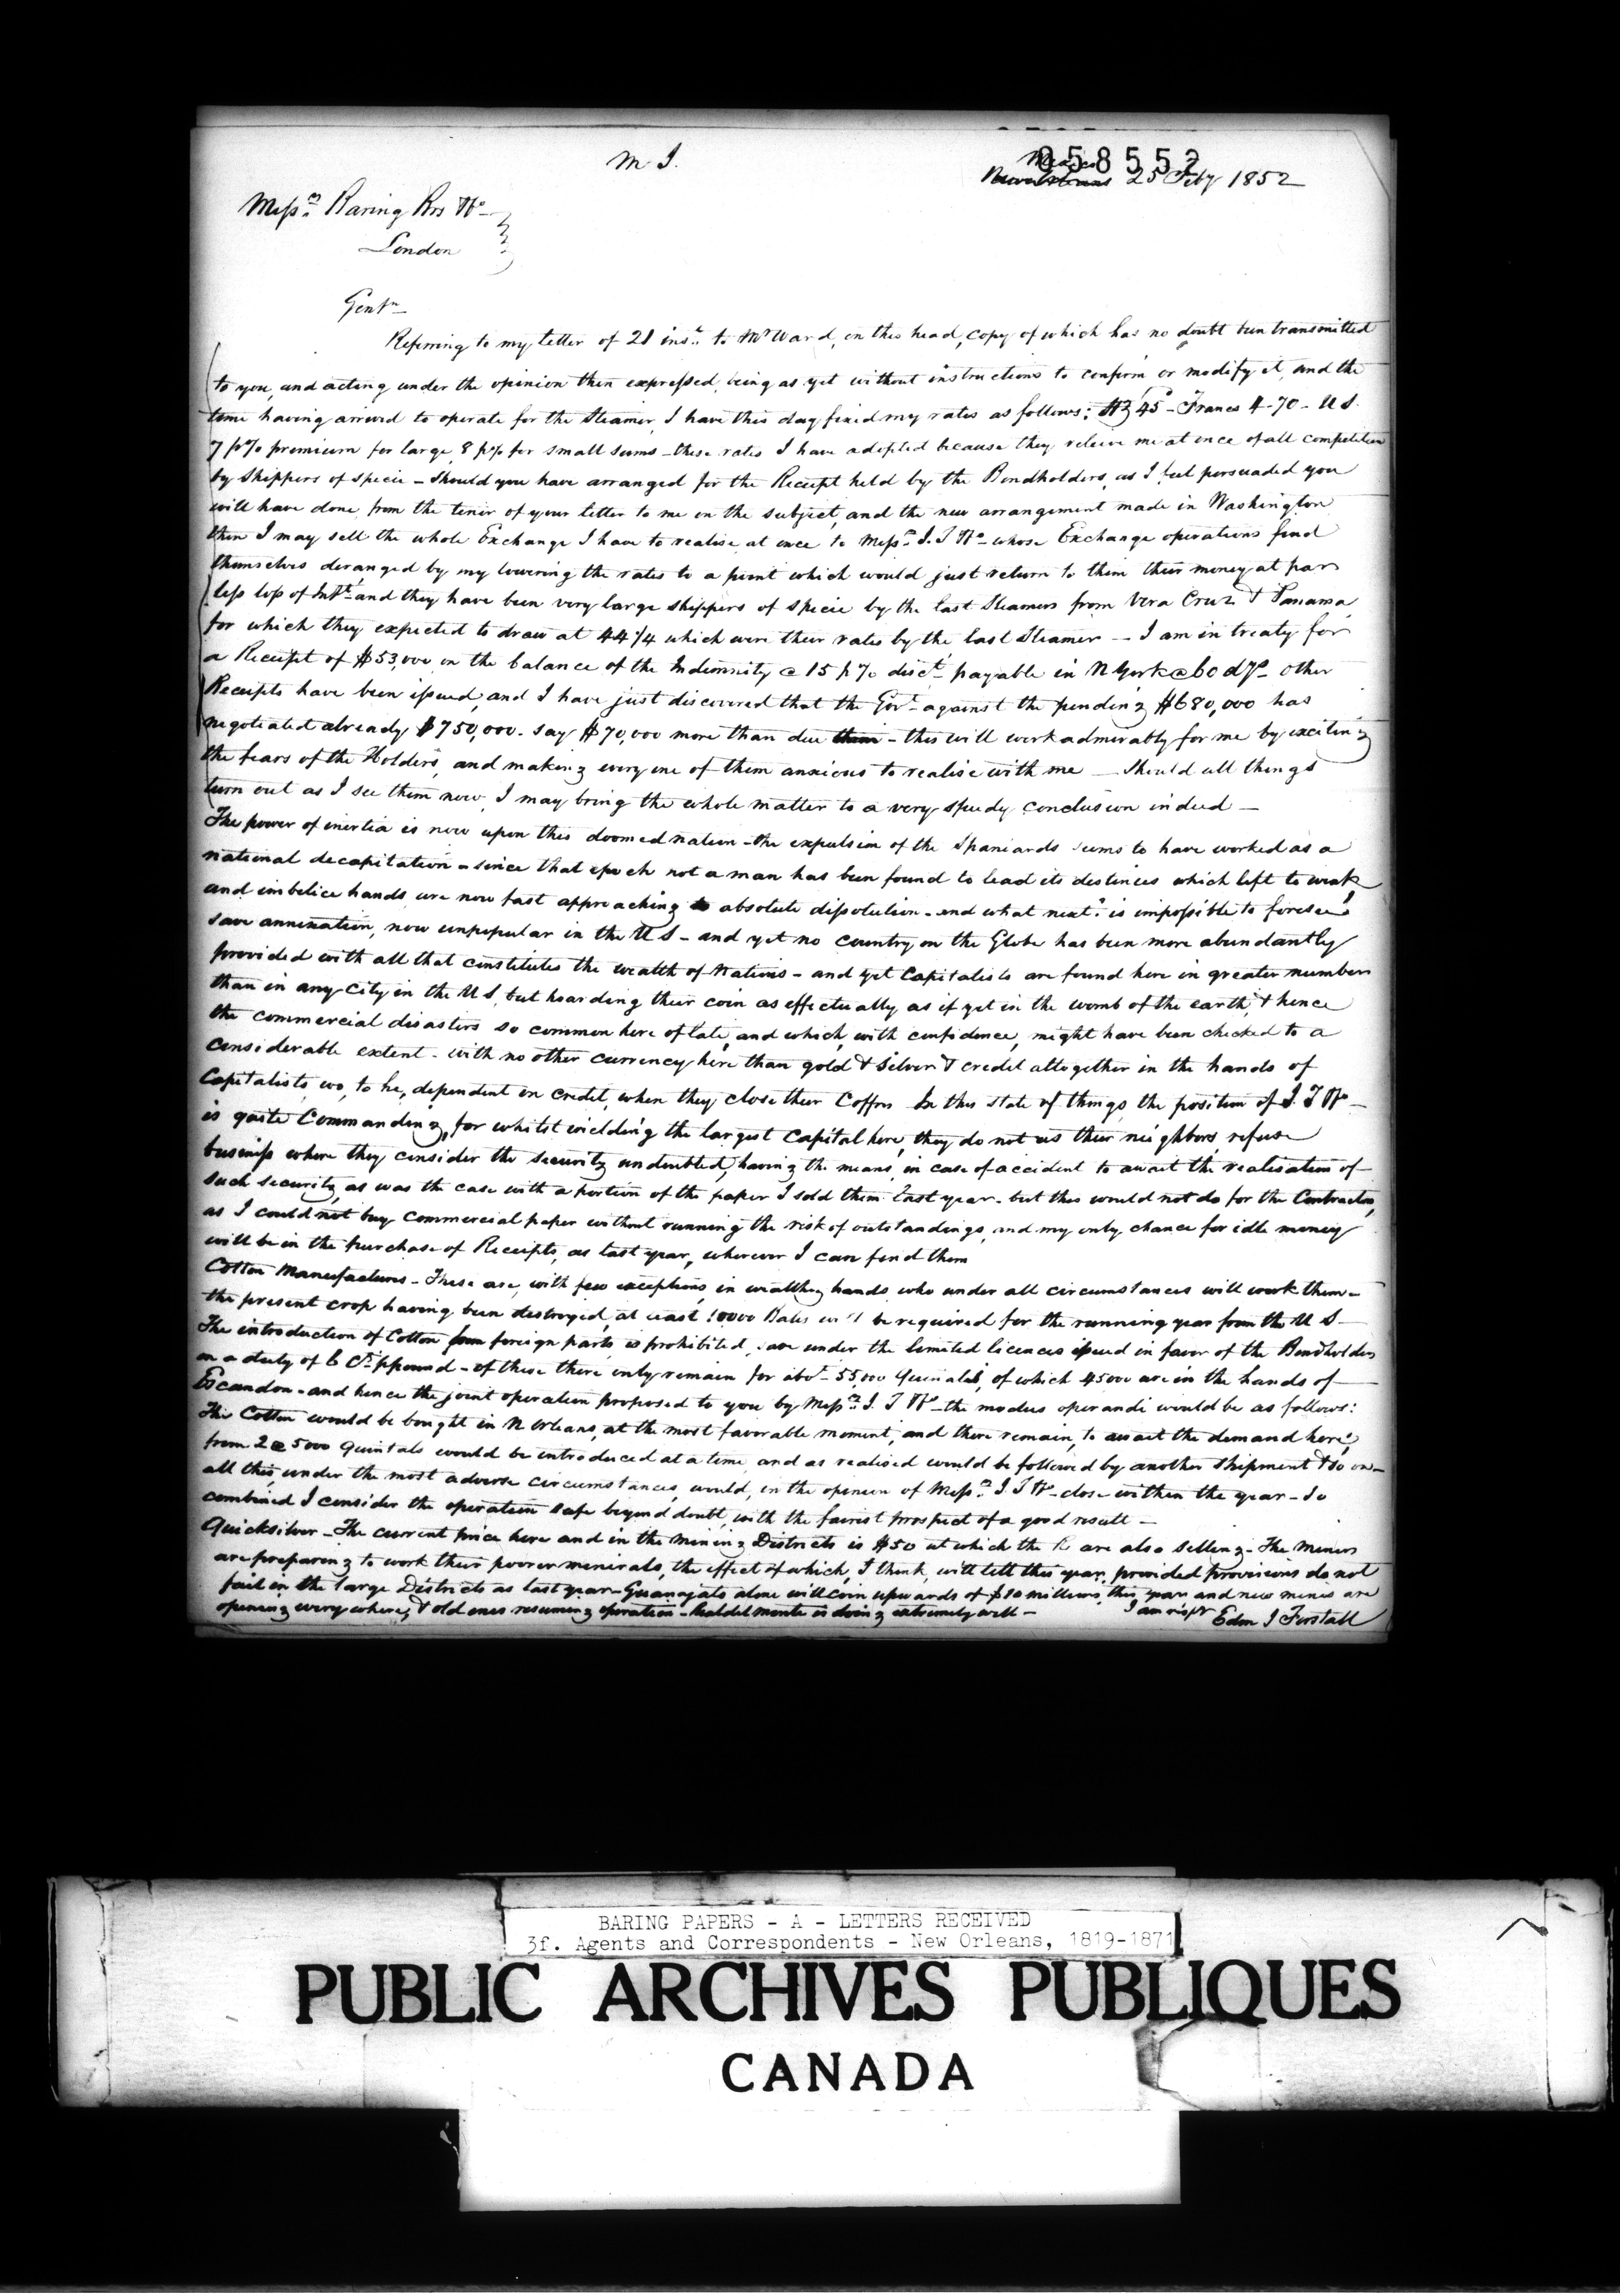 M I.
058552
Mexico
New Orleans 25 Feby 1852
Messrs Baring Brs & Co
London
Gentn
Referring to my letter of 21 inst. to Mr Ward, on this head, copy of which has no doubt been transmitted
to you, and acting under the opinion then expressed, being as yet without instructions to confirm or modify it, and the
time having arrived to operate for the Steamer, I have this day fixed my rates as follows: 45 - Francs 4-70 - U S.
7 p% premium for large, 8 p% for small sums - these rates I have adopted because they relieve me at once of all competition
by Shippers of specie - Should you have arranged for the Receipt held by the Bondholders, as I feel persuaded you
will have done, from the tenor of your letter to me on the subject, and the new arrangement made in Washington
then I may sell the whole Exchange I have to realise at once to Messrs J. T & Co - whose Exchange operations find
themselves deranged by my lowering the rates to a point which would just return to them their money at par
less loss of Intt and they have been very large shippers of specie by the last Steamers from Vera Cruz & Panama,
for which they expected to draw at 44 1/4 which were their rates by the last Steamer - I am in treaty for
a Receipt of $53,000 on the balance of the Indemnity @ 15 p% disct payable in N York @ 60 d/s - other
Receipts have been issued, and I have just discovered that the Govt against the pending $680,000 has
negotiated already $750,000 - say $70,000 more than due - this will work admirably for me by exciting
the fears of the Holders, and making every one of them anxious to realise with me - Should all things
turn out as I see them now, I may bring the whole matter to a very speedy conclusion indeed -
The power of inertia is now upon this doomed nation - the expulsion of the Spaniards seems to have worked as a
national decapitation - since that epoch not a man has been found to lead its destinies which left to weak
and imbelice hands are now fast approaching absolute dissolution - and what next? is impossible to foresee
save annexation, now unpopular in the U S - and yet no country on the Globe has been more abundantly
provided with all that constitutes the wealth of Nations - and yet Capitalists are found here in greater numbers
than in any city in the U S, but hoarding their coin as effectually as if yet in the womb of the earth, & hence
the commercial disasters so common here of late, and which, with confidence, might have been checked to a
considerable extent - with no other currency here than gold & silver & credit altogether in the hands of
Capitalists, wo, to he, dependent on credit, when they close their Coffers In this state of things, the position of J. T & Co -
is quite Commanding, for whilst wielding the largest Capital here, they do not as their neighbors, refuse
business where they consider the security undoubted, having the means, in case of accident to await the realisation of
such security, as was the case with a portion of the paper I sold them last year - but this would not do for the Contractors,
as I could not buy commercial paper without running the risk of outstandings, and my only chance for idle money
will be in the purchase of Receipts, as last year, wherever I can find them
Cotton Manufactures - These are, with few exceptions, in wealthy hands who under all circumstances will work them -
the present crop having been destroyed, at least 10000 Bales will be required for the running year from the U S -
The introduction of Cotton from foreign parts is prohibited, save under the limited licences issued in favor of the Bondholders
on a duty of 6 Cts ppound - of these there only remain for abt 55,000 Quintals, of which 45000 are in the hands of
Escandon - and hence the joint operation proposed to you by Messrs J. T & Co - the modus operandi would be as follows:
The Cotton would be bought in N Orleans, at the most favorable moment, and there remain, to await the demand here;
from 2 @ 5000 Quintals would be introduced at a time, and as realised would be followed by another shipment & so on -
all this, under the most adverse circumstances, would, in the opinion of Messrs J. T & Co - close within the year - So
combined I consider the operation safe beyond doubt, with the fairest prospect of a good result -
Quicksilver - The current price here and in the Mining Districts is $50 at which the are also selling - The Miners
are preparing to work their poorer minerals, the effect of which, I think, will tell this year, provided provisions do not
fail in the large Districts as last year - Guanajato alone will coin upwards of $10 millions, this year and new mines are
opening every where, & old ones resuming operation - Real del monte is doing extremely well -
I am respy Edm J Forstall
BARING PAPERS - A - LETTERS RECEIVED
3f. Agents and Correspondents - New Orleans, 1819-1871
PUBLIC ARCHIVES PUBLIQUES
CANADA